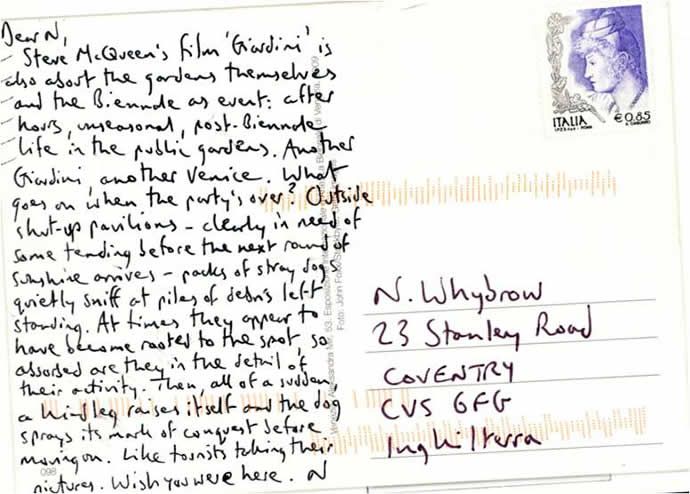 Dear N,
Steve McQueen's film 'Giardini' is
also about the gardens themselves
and the Biennale as event: after
hours, unseasonal, post-Biennale
life in the public gardens. Another
Giardini, another Venice. What
goes on when the party's over? Outside
shut-up pavilions – clearly in need of
some tending before the next round of
sunshine arrives – packs of stray dogs
quietly sniff at piles of debris left
standing. At times they appear to
have become rooted to the spot, so
absorbed are they in the detail of
their activity. Then, all of a sudden,
a hindleg raises itself and the dog
sprays its mark of conquest before
moving on. Like tourists taking their
pictures. Wish you were here. N
098
Foto: John
ITALIA
€0,85
I.P.Z.S. S.p.A. - ROMA
N. Whybrow
23 Stanley Road
COVENTRY
CV5 6FG
Inghilterra